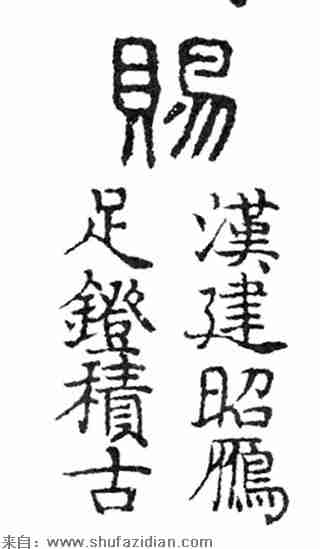 賜
漢建昭鴈
足鐙積古
来自：www.shufazidian.com